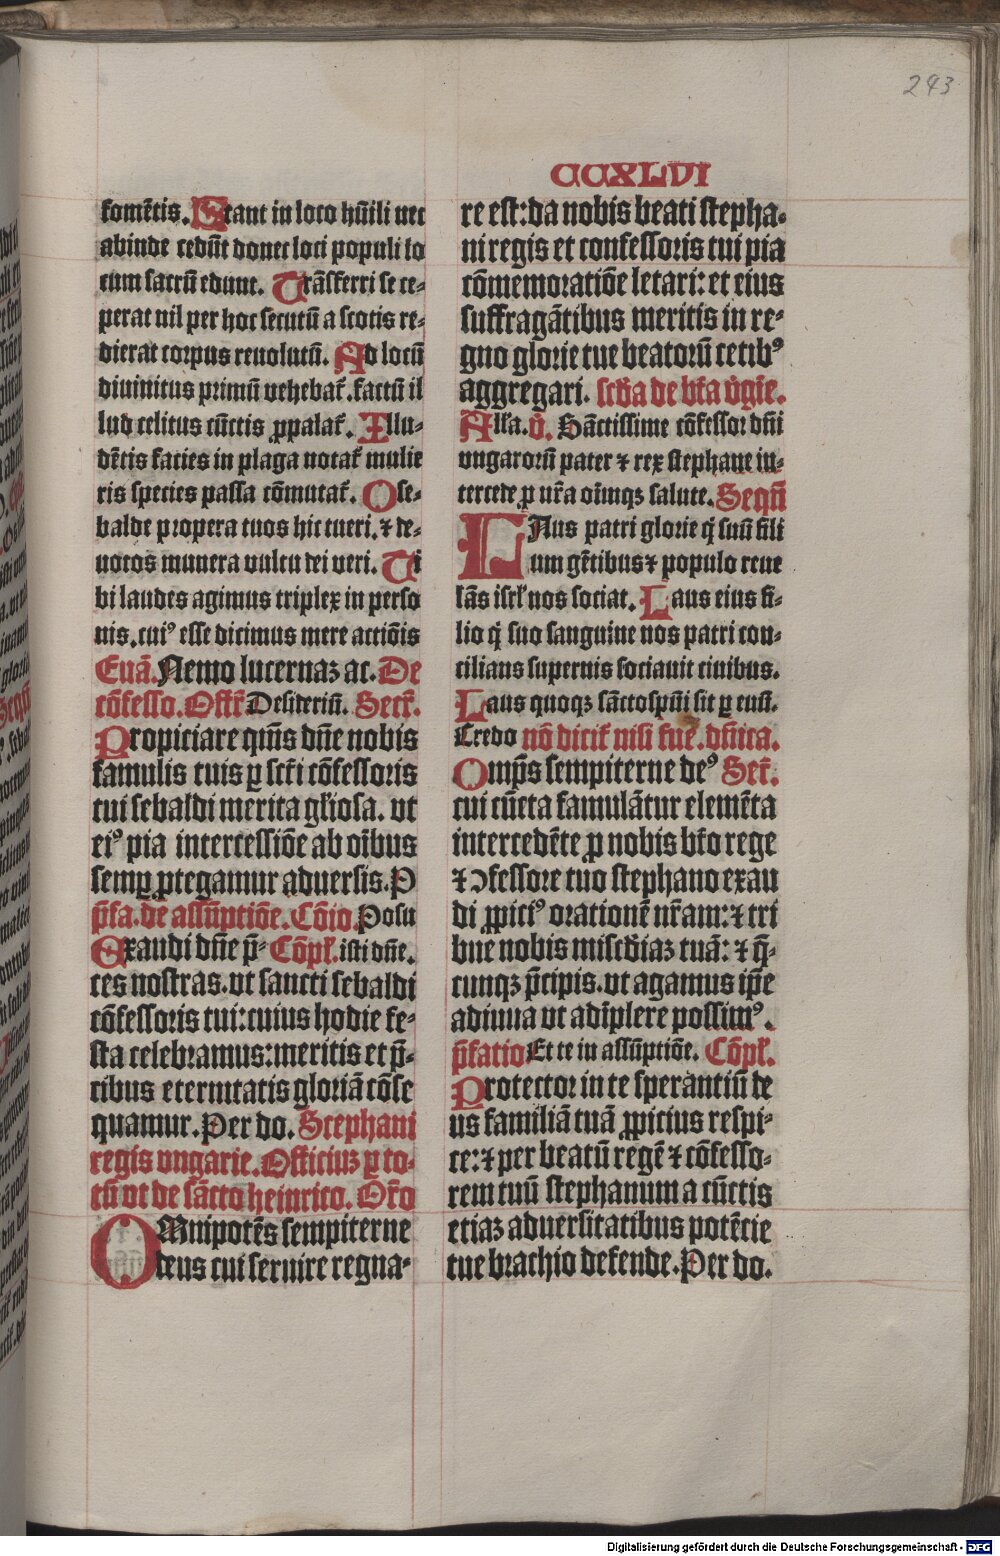 243
CCXLVI
fomẽtis. Stant in loco hũili nec
abinde cedũt donec loci populi lo
cum sacrũ edunt. Trãsferri se ce-
perat nil per hoc secutũ a scotis re-
dierat corpus reuolutũ. Ad locũ
diuinitus primũ vehebat̃. factũ il
lud celitus cũctis ꝓpalat̃. Illu-
dẽtis facies in plaga notat̃ mulie
ris species passa cõmutat̃. O se-
balde propera tuos hic tueri. ⁊ de-
uotos munera vultu dei veri. Ti
bi laudes agimus triplex in perso
nis. cuiꝰ esse dicimus mere actiõis
Euã. Nemo lucernaz ac. De
cõfesso. Offr̃ Desideriũ. Secr̃.
Propiciare q̃us dñe nobis
famulis tuis ꝑ scti cõfessoris
tui sebaldi merita gl'iosa. vt
eiꝰ pia intercessiõe ab oĩbus
semꝑ ꝓtegamur aduersis. P
p̃fa. de assũptiõe. Cõio Posu
Exaudi dñe p̃- Cõpl'. isti dñe.
ces nostras. vt sancti sebaldi
cõfessoris tui: cuius hodie fe-
sta celebramus: meritis et p̃-
cibus eternitatis gloriã cõse
quamur. Per do. Stephani
regis vngarie. Officiuz ꝑ to-
tũ vt de sãcto heinrico. Or̃o
OMnipotẽs sempiterne
deus cui seruire regna-
re est: da nobis beati stepha-
ni regis et confessoris tui pia
cõmemoratiõe letari: et eius
suffragãtibus meritis in re-
gno glorie tue beatorũ cetibꝰ
aggregari. scd'a de bt̃a v̓gie̓.
All'a. v̓. Sãctissime cõfessor dñi
vngarorũ pater ⁊ rex stephane in-
tercede ꝓ nr̃a oĩmqz salute. Seqũ
LAus patri glorie q̓ suũ fili
um gẽtibus ⁊ populo reue
lãs isrl' nos sociat. Laus eius fi-
lio q̓ suo sanguine nos patri con-
cilians supernis sociauit ciuibus.
Laus quoqz sãctospũi sit ꝑ eũ.
Credo nõ dicit̃ nisi fuẽ. dñica.
Omp̃s sempiterne deꝰ Set̃.
cui cũcta famulãtur elemẽta
intercedẽte ꝓ nobis bt̃o rege
⁊ ↄfessore tuo stephano exau
di ꝓpiciꝰ orationẽ nr̃am: ⁊ tri
bue nobis misc̓diaz tuã: ⁊ q̃-
cunqz p̃cipis. vt agamus ip̃e
adiuua vt adĩplere possimꝰ.
p̃fatio Et te in assũptiõe. Cõpl'.
Protector in te sperantiũ de
us familiã tuã ꝓpicius respi-
ce: ⁊ per beatũ regẽ ⁊ cõfesso-
rem tuũ stephanum a cũctis
etiaz aduersitatibus potẽcie
tue brachio defende. Per do.
Digitalisierung gefördert durch die Deutsche Forschungsgemeinschaft - DFG